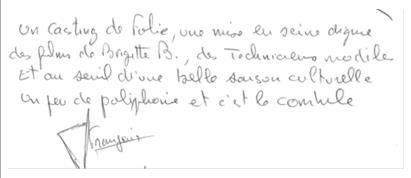 un casting de Folie, une mise en scène digne
des films de Brigitte B., des Techniciens modèles
Et au seuil d'une belle saison culturelle
un peu de poliphonie et c'est le comble
François